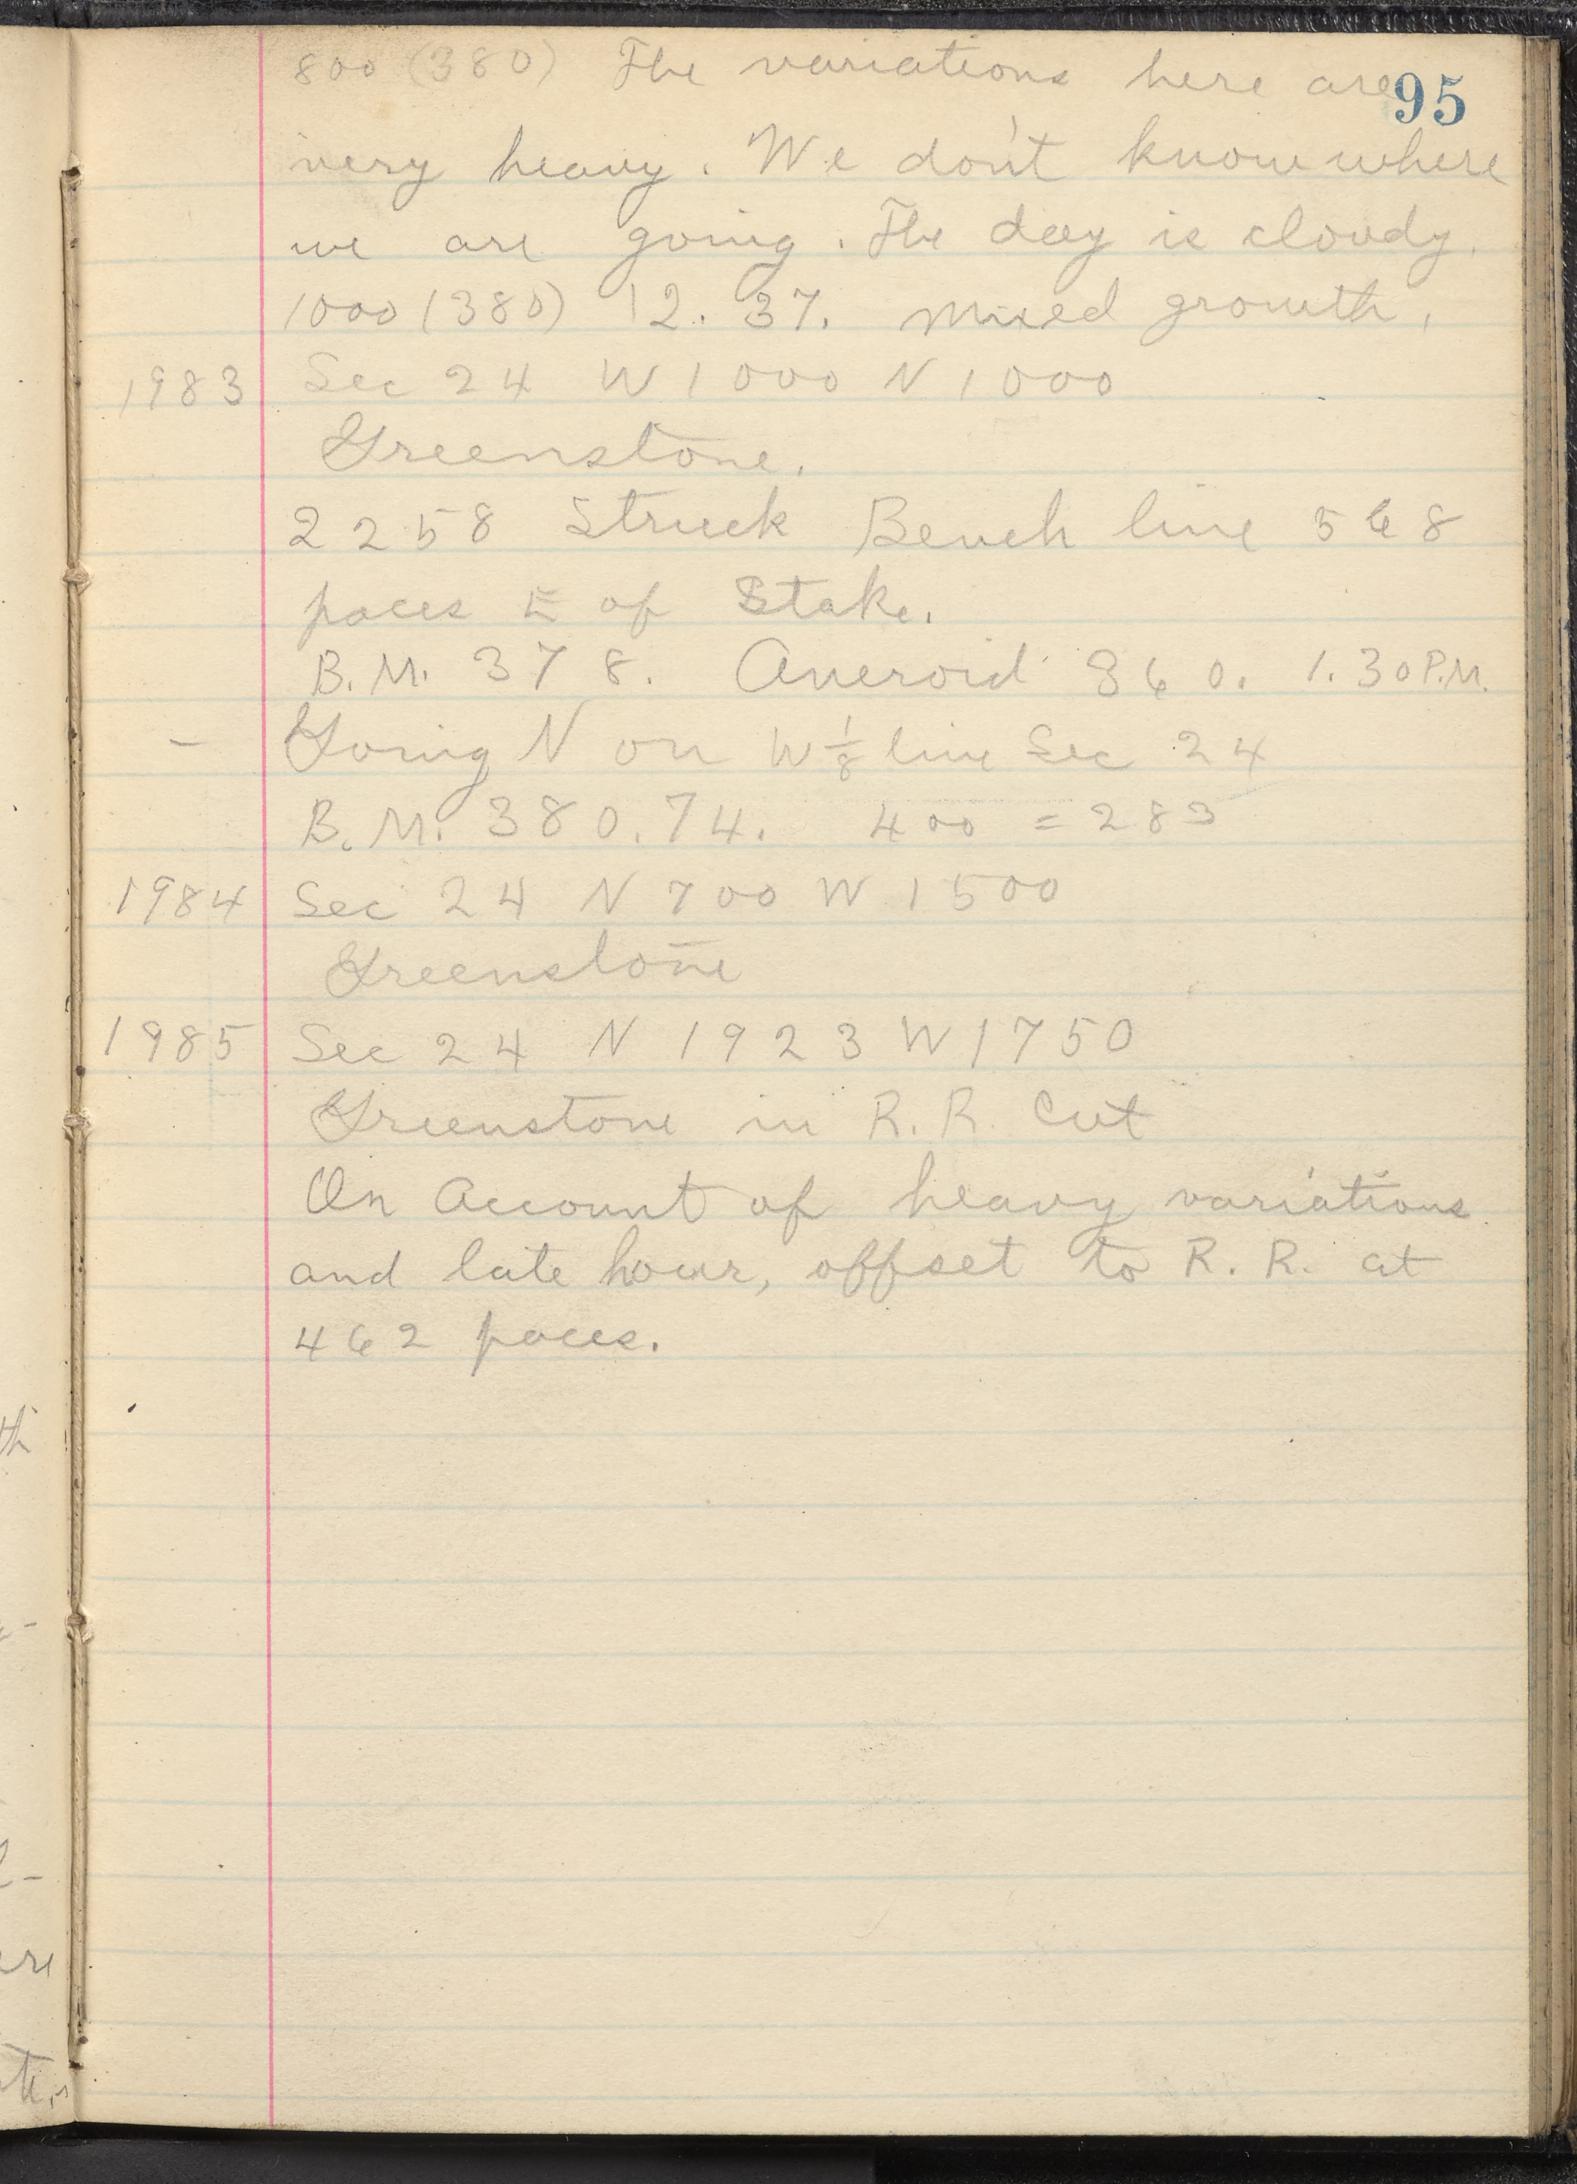 95
800 (380) The variations here are
very heavy. We don't know where
we are going. The day is cloudy.
1000 (380) 12.37. Mixed growth.
1983 Sec 24 W 1000 N 1000
Greenstone.
2258 Struck Bench line 568
paces E of Stake.
B.M. 378. Aneroid 360. 1.30 P.M.
– Going N on W 1/8 line Sec 24
B.M. 380.74. 400 = 283
1984 Sec 24 N 700 W 1500
Greenstone
1985 Sec 24 N 1923 W 1750
Greenstone in R.R. Cut
On Account of heavy variations
and late hour, offset to R.R. at
462 paces.